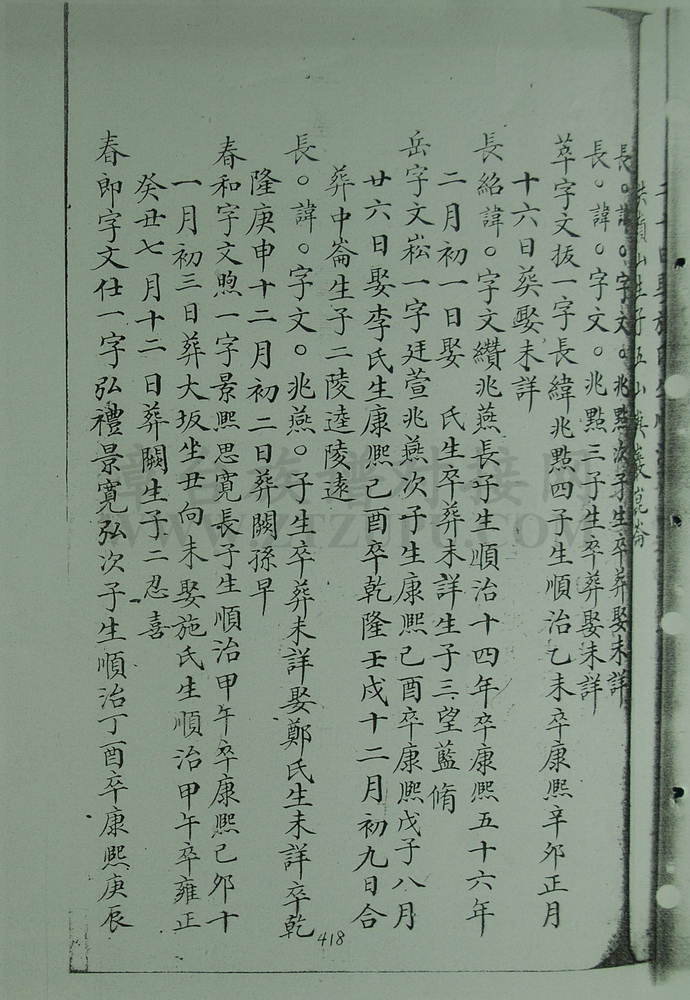 長。諱。字文。兆點次子生卒葬娶未詳
長。諱。字文。兆點三子生卒葬娶未詳
萃字文拔一字長緯兆點四子生順治乙未卒康熙辛卯正月
十六日葬娶未詳
長紹諱。字文纘兆燕長子生順治十四年卒康熙五十六年
二月初一日娶 氏生卒葬未詳生子三望藍脩
岳字文崧一字廷萱兆燕次子生康熙己酉卒康熙戊子八月
廿六日娶李氏生康熙己酉卒乾隆壬戌十二月初九日合
葬中崙生子二陵逵陵遠
長。諱。字文。兆燕。子生卒葬未詳娶鄭氏生未詳卒乾
隆庚申十二月初二日葬闕孫早
春和字文煦一字景熙思寬長子生順治甲午卒康熙己卯十
一月初三日葬大坂坐丑向未娶施氏生順治甲午卒雍正
癸丑七月十二日葬闕生子二忍喜
春郎字文仕一字弘禮景寬弘次子生順治丁酉卒康熙庚辰
418
章谷族譜对接网
WWW.ZTZUPU.COM